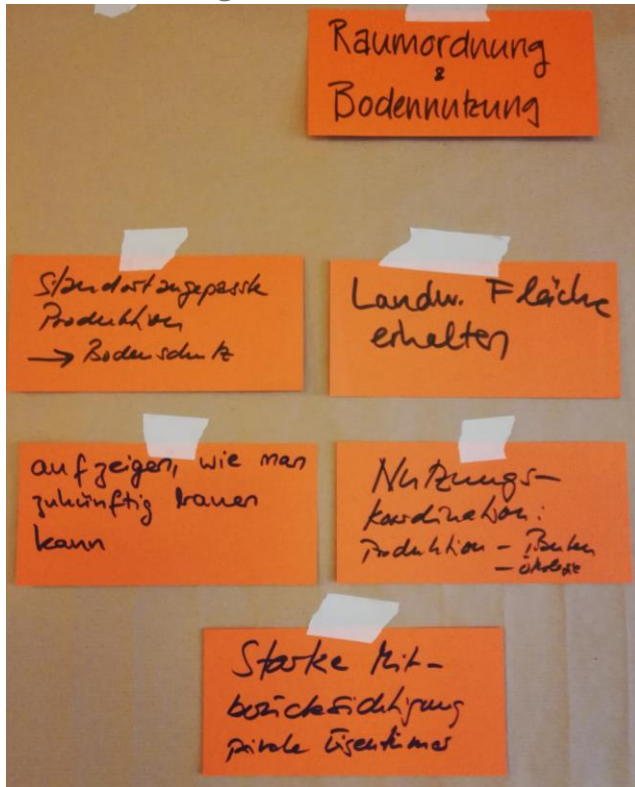 Raumordnung
&
Bodennutzung
Standortangepasste
Produktion
→ Bodenschutz
Landw. Fläche
erhalten
aufzeigen, wie man
zukünftig bauen
kann
Nutzungs-
koordination:
Produktion - Bauten
- Ökologie
Starke Mit-
berücksichtigung
private Eigentümer